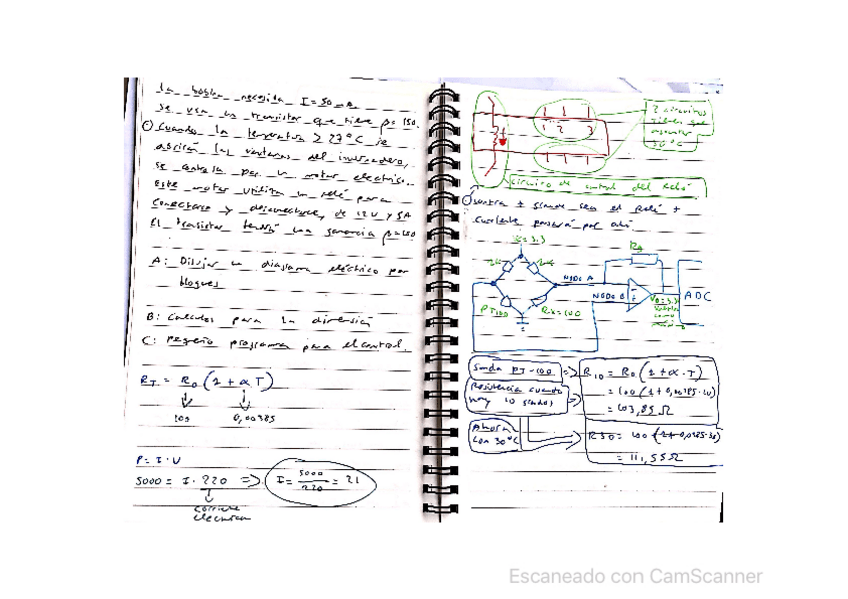 La bobina necesita I = 50 mA
se usa un transistor que tiene β = 150.
Cuando la temperatura > 23°C se
abrirán las ventanas del invernadero,
se controla por un motor eléctrico.
Este motor utiliza un relé para
conectarse y desconectarse, de 12V y 5A
El transistor tendrá una ganancia β=100
A: Dibujar un diagrama eléctrico por
bloques
B: Calculos para la
C: pequeño programa para el control.
RT = R0 (1 + αT)
100 0,00385
P = I · V
5000 = I · 220 => I = 5000/220 = 21
corriente
electrica
1 1 1
1 2 3
1 1 1
2 circuitos
30°C
circuito de control del Relé
+ grande sea el Relé +
corriente pasará por ahí
V=3.3
2K 2K
NODO A
NODO B
PT100 RX=100
ADC
Sonda PT-100 => R10 = R0 (1 + α · T)
Resistencia cuando
hay 10 grados => = 100 (1 + 0,00385·10)
= 103,85 Ω
Ahora
con 30°C => R30 = 100 (1 + 0,0385·30)
= 111,55 Ω
Escaneado con CamScanner